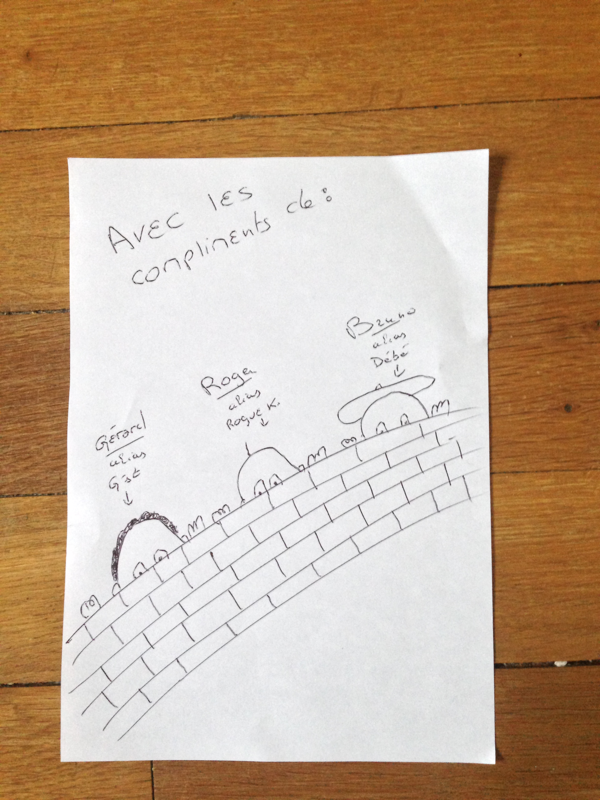 Avec les
compliments de:
Gérard
alias
Gist
Roger
alias
Rogue K.
Bruno
alias
Débé